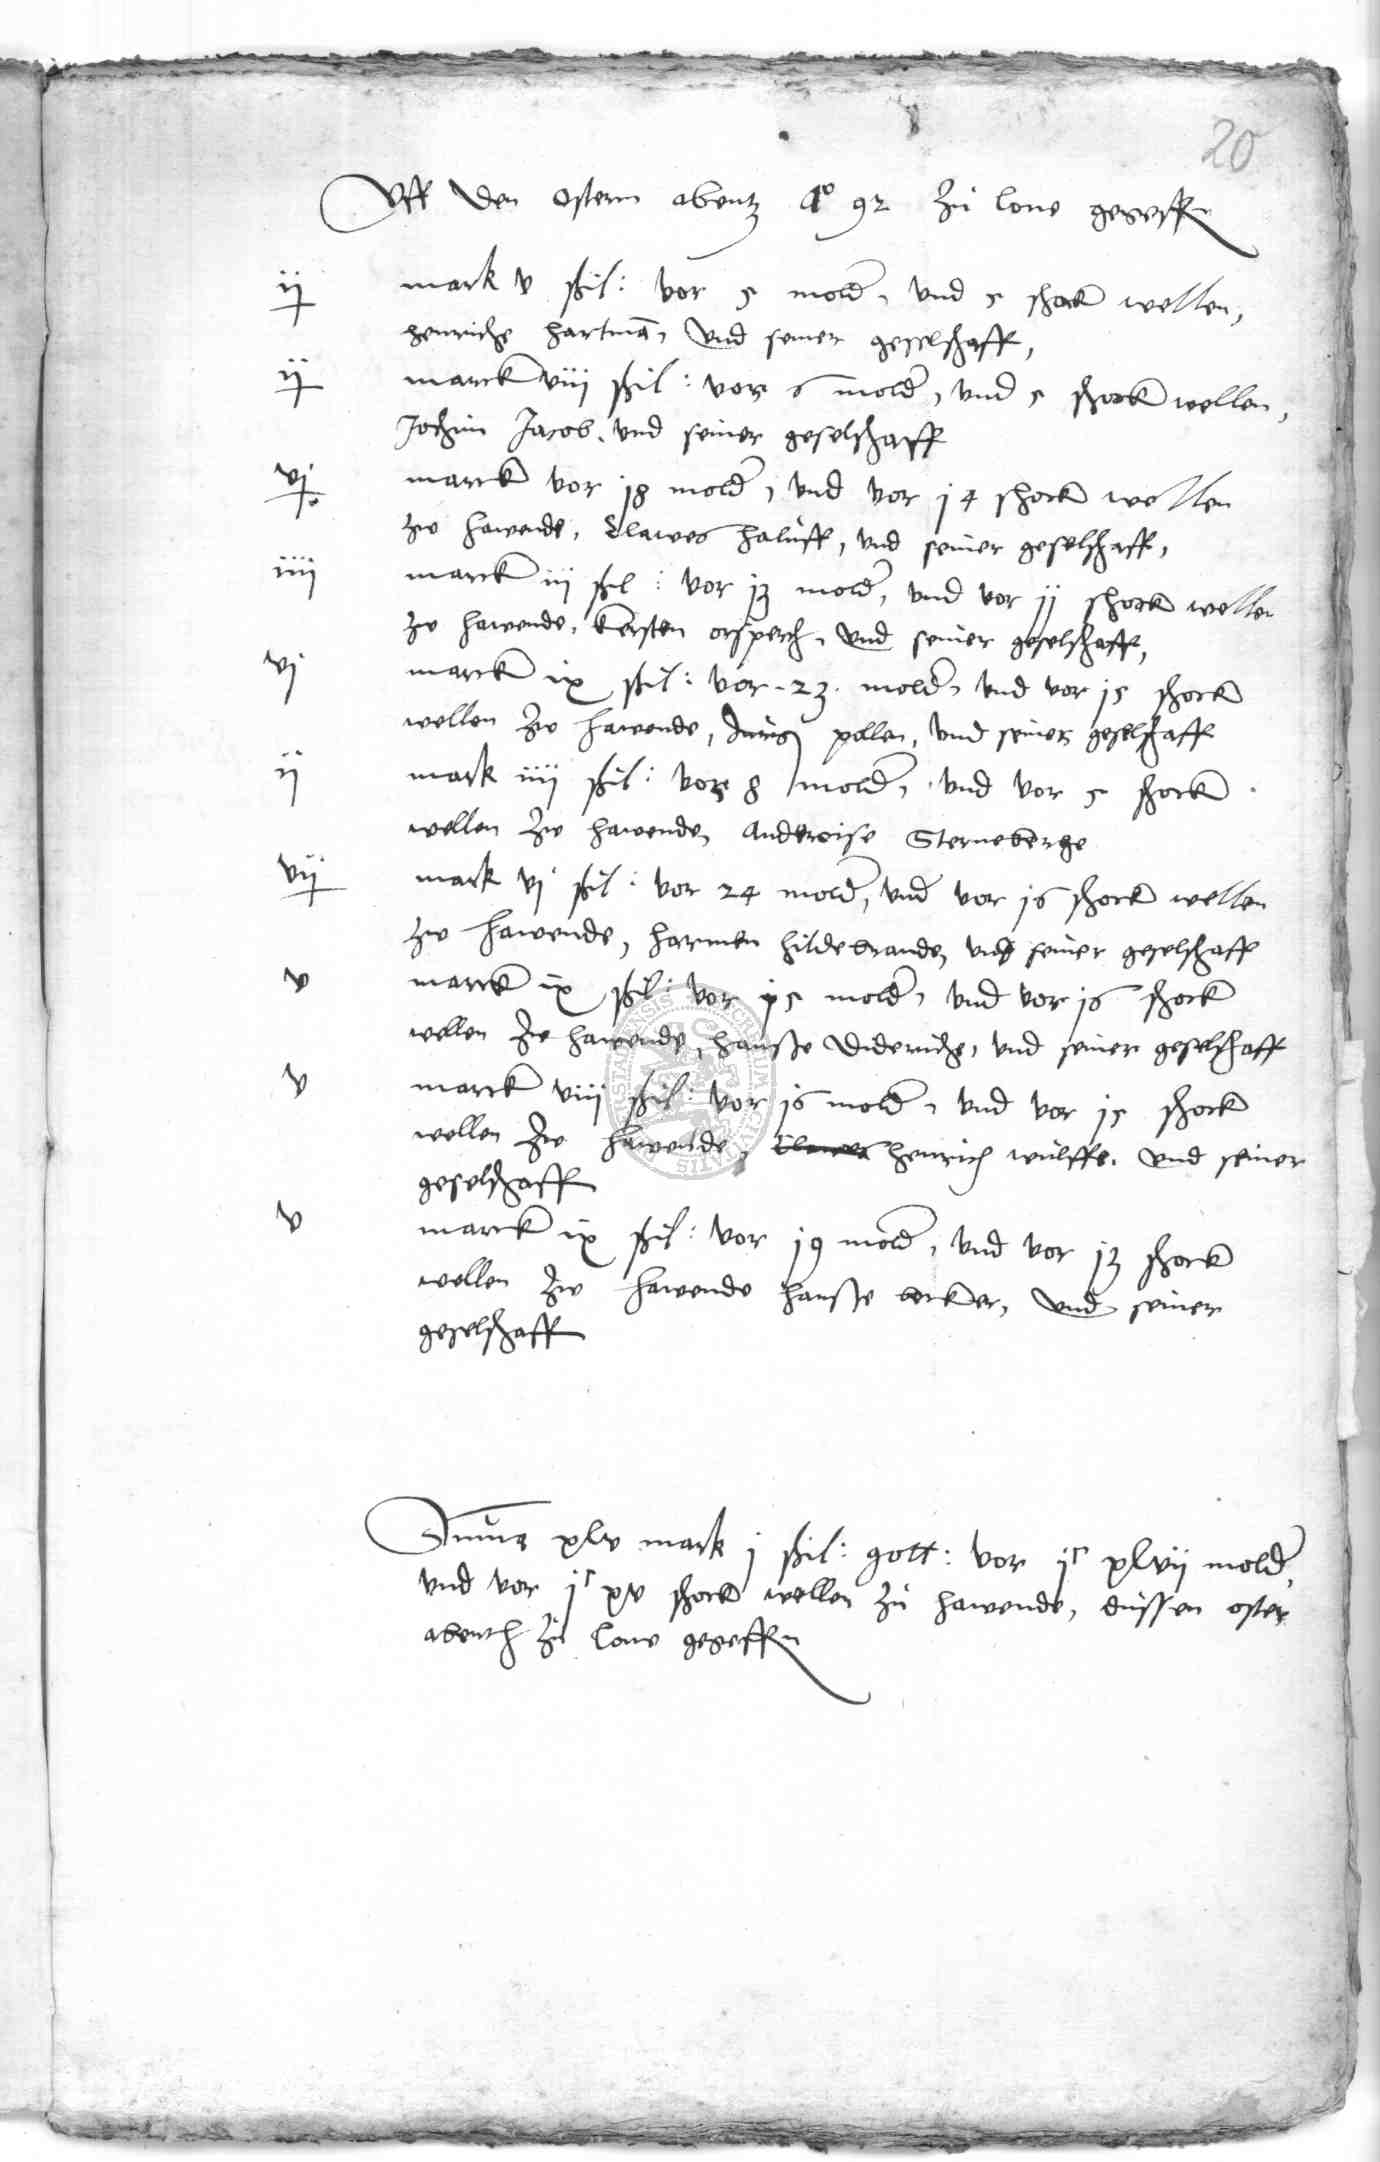 20
Vff den ostern abentz Ao 92 zu lone gegeff
ij mark v ßil: vor 5 mold, vnd 5 shock wellen,
henriche hartman, vnd seiner geselshaff,
ij marck viii ßil: vor 6 mold, vnd 5 shock wellen,
Jochim Jacob, vnd seiner geselshaff
vj marck vor 18 mold, vnd vor 14 shock wellen
zw hawende, Clawes haluff, vnd seiner geselshaff,
iiij marck iij ßil: vor 13 mold, vnd vor jj shock wellen
zw hawende, kersten orsperch, vnd seiner geselshaff,
vj marck ix ßil: vor 23 mold, vnd vor 15 shock
wellen zw hawende, Jurig pollen, vnd seiner geselshaff
ij mark iiij ßil: vor 8 mold, vnd vor 5 shock
wellen zw hawende, Anderise Sterneberge
vij mark vj ßil: vor 24 mold, vnd vor 16 shock wellen
zw hawende, harmen hildebrande, vnd seiner geselshaff
v marck ix ßil: vor 15 mold, vnd vor 16 shock
wellen zw hawende, hansse Dideriche, vnd seiner geselshaff
v marck viij ßil: vor 16 mold, vnd vor 15 shock
wellen zw hawende, henrich wulffe, vnd seiner
geselshaff
v marck ix ßil: vor 19 mold, vnd vor 13 shock
wellen zw hawende hansse becker, vnd seiner
geselshaff
Summa xlv mark j ßil: gott: vor jc xlvij mold,
vnd vor jc xv shock wellen zu hawende, dussen oster
abenth zu lone gegeff